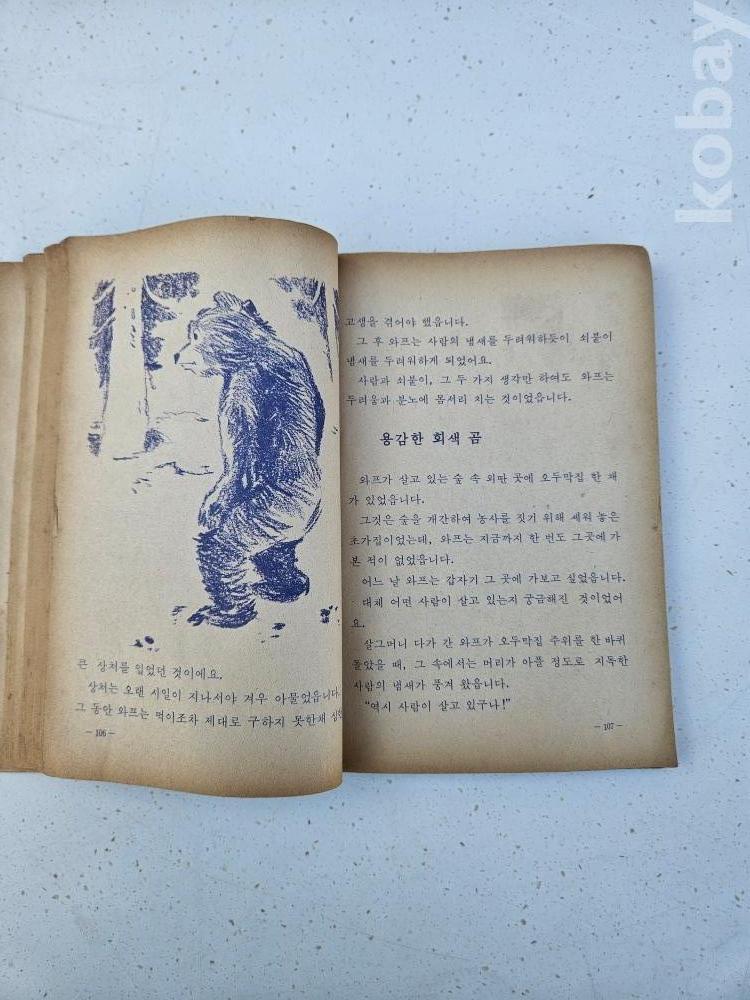 큰 상처를 입었던 것이에요.
상처는 오랜 시일이 지나서야 겨우 아물었읍니다.
그 동안 와프는 먹이조차 제대로 구하지 못한채
— 106 —
고생을 겪어야 했읍니다.
그 후 와프는 사람의 냄새를 두려워하듯이 쇠붙이
냄새를 두려워하게 되었어요.
사람과 쇠붙이, 그 두 가지 생각만 하여도 와프는
두려움과 분노에 몸서리 치는 것이었읍니다.
용감한 회색 곰
와프가 살고 있는 숲 속 외딴 곳에 오두막집 한 채
가 있었읍니다.
그것은 숲을 개간하여 농사를 짓기 위해 세워 놓은
초가집이었는데, 와프는 지금까지 한 번도 그곳에 가
본 적이 없었읍니다.
어느 날 와프는 갑자기 그 곳에 가보고 싶었읍니다.
대체 어떤 사람이 살고 있는지 궁금해진 것이었어
요.
살그머니 다가 간 와프가 오두막집 주위를 한 바퀴
돌았을 때, 그 속에서는 머리가 아플 정도로 지독한
사람의 냄새가 풍겨 왔읍니다.
“역시 사람이 살고 있구나!”
— 107 —
kobay